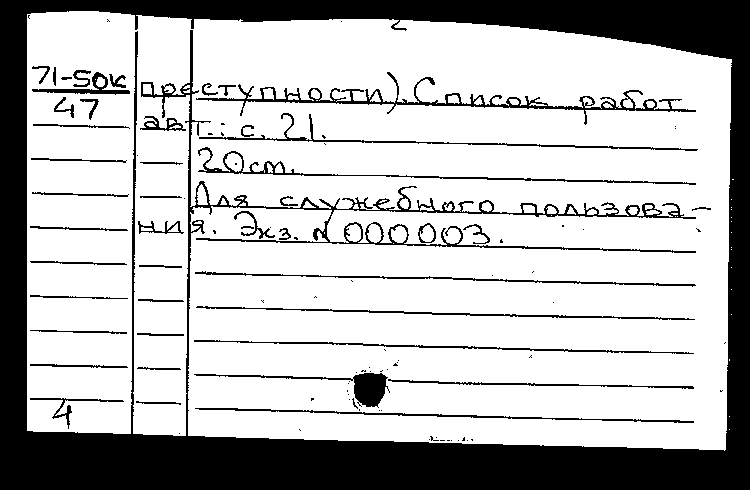 2
71-50к преступности). Список работ
47 авт.: с. 21.
20см.
Для служебного пользова-
ния. Экз. № 000003.
4